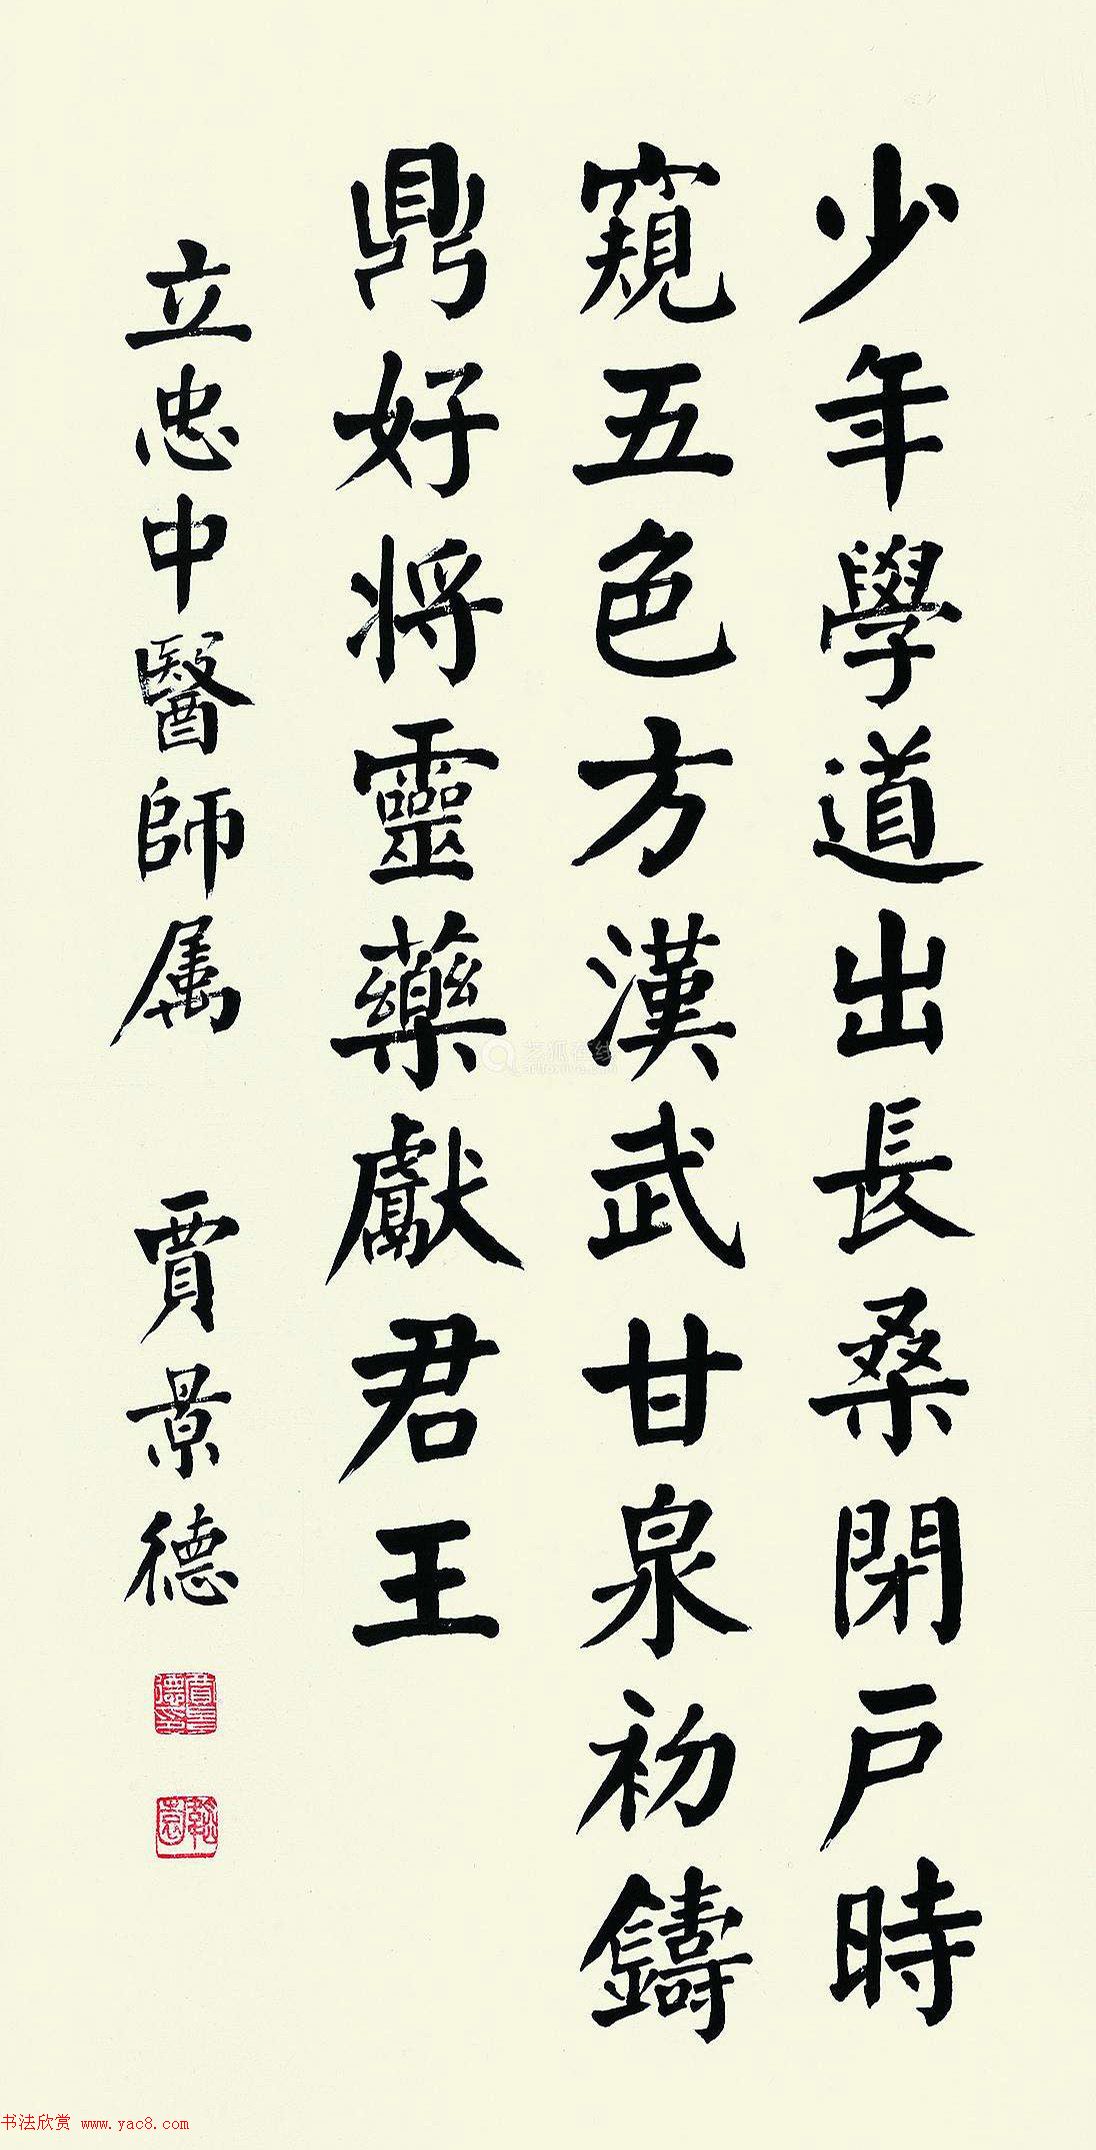 少年學道出長桑閉戸時
窺五色方漢武甘泉初鑄
鼎好将靈藥獻君王
立忠中醫師属 賈景德
書法欣赏 www.yac8.com